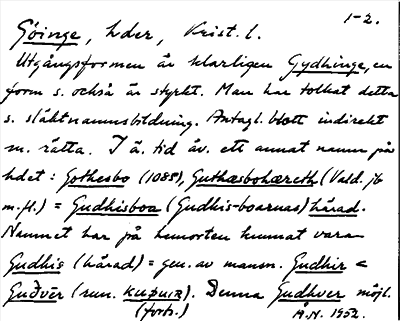 1-2.
Göinge, hder, Krist. l.
Utgångsformen är klarligen Gydhinge, en
form s. också är styrkt. Man har tolkat detta
s. släktnamnsbildning. Antagl. blott indirekt
m. rätta. I ä. tid äv. ett annat namn på
hdet: Gothesbo (1085), Guthæsbohæreth (Vald. jb
m.fl.) = Gudhisboa (Gudhis-boarnas) härad.
Namnet har på hemorten kunnat vara
Gudhis (härad) = gen. av mansn. Gudhir <
Guðvēr (run. KUÞUIR). Denna Gudhver möjl.
(forts.) A.N. 1952.